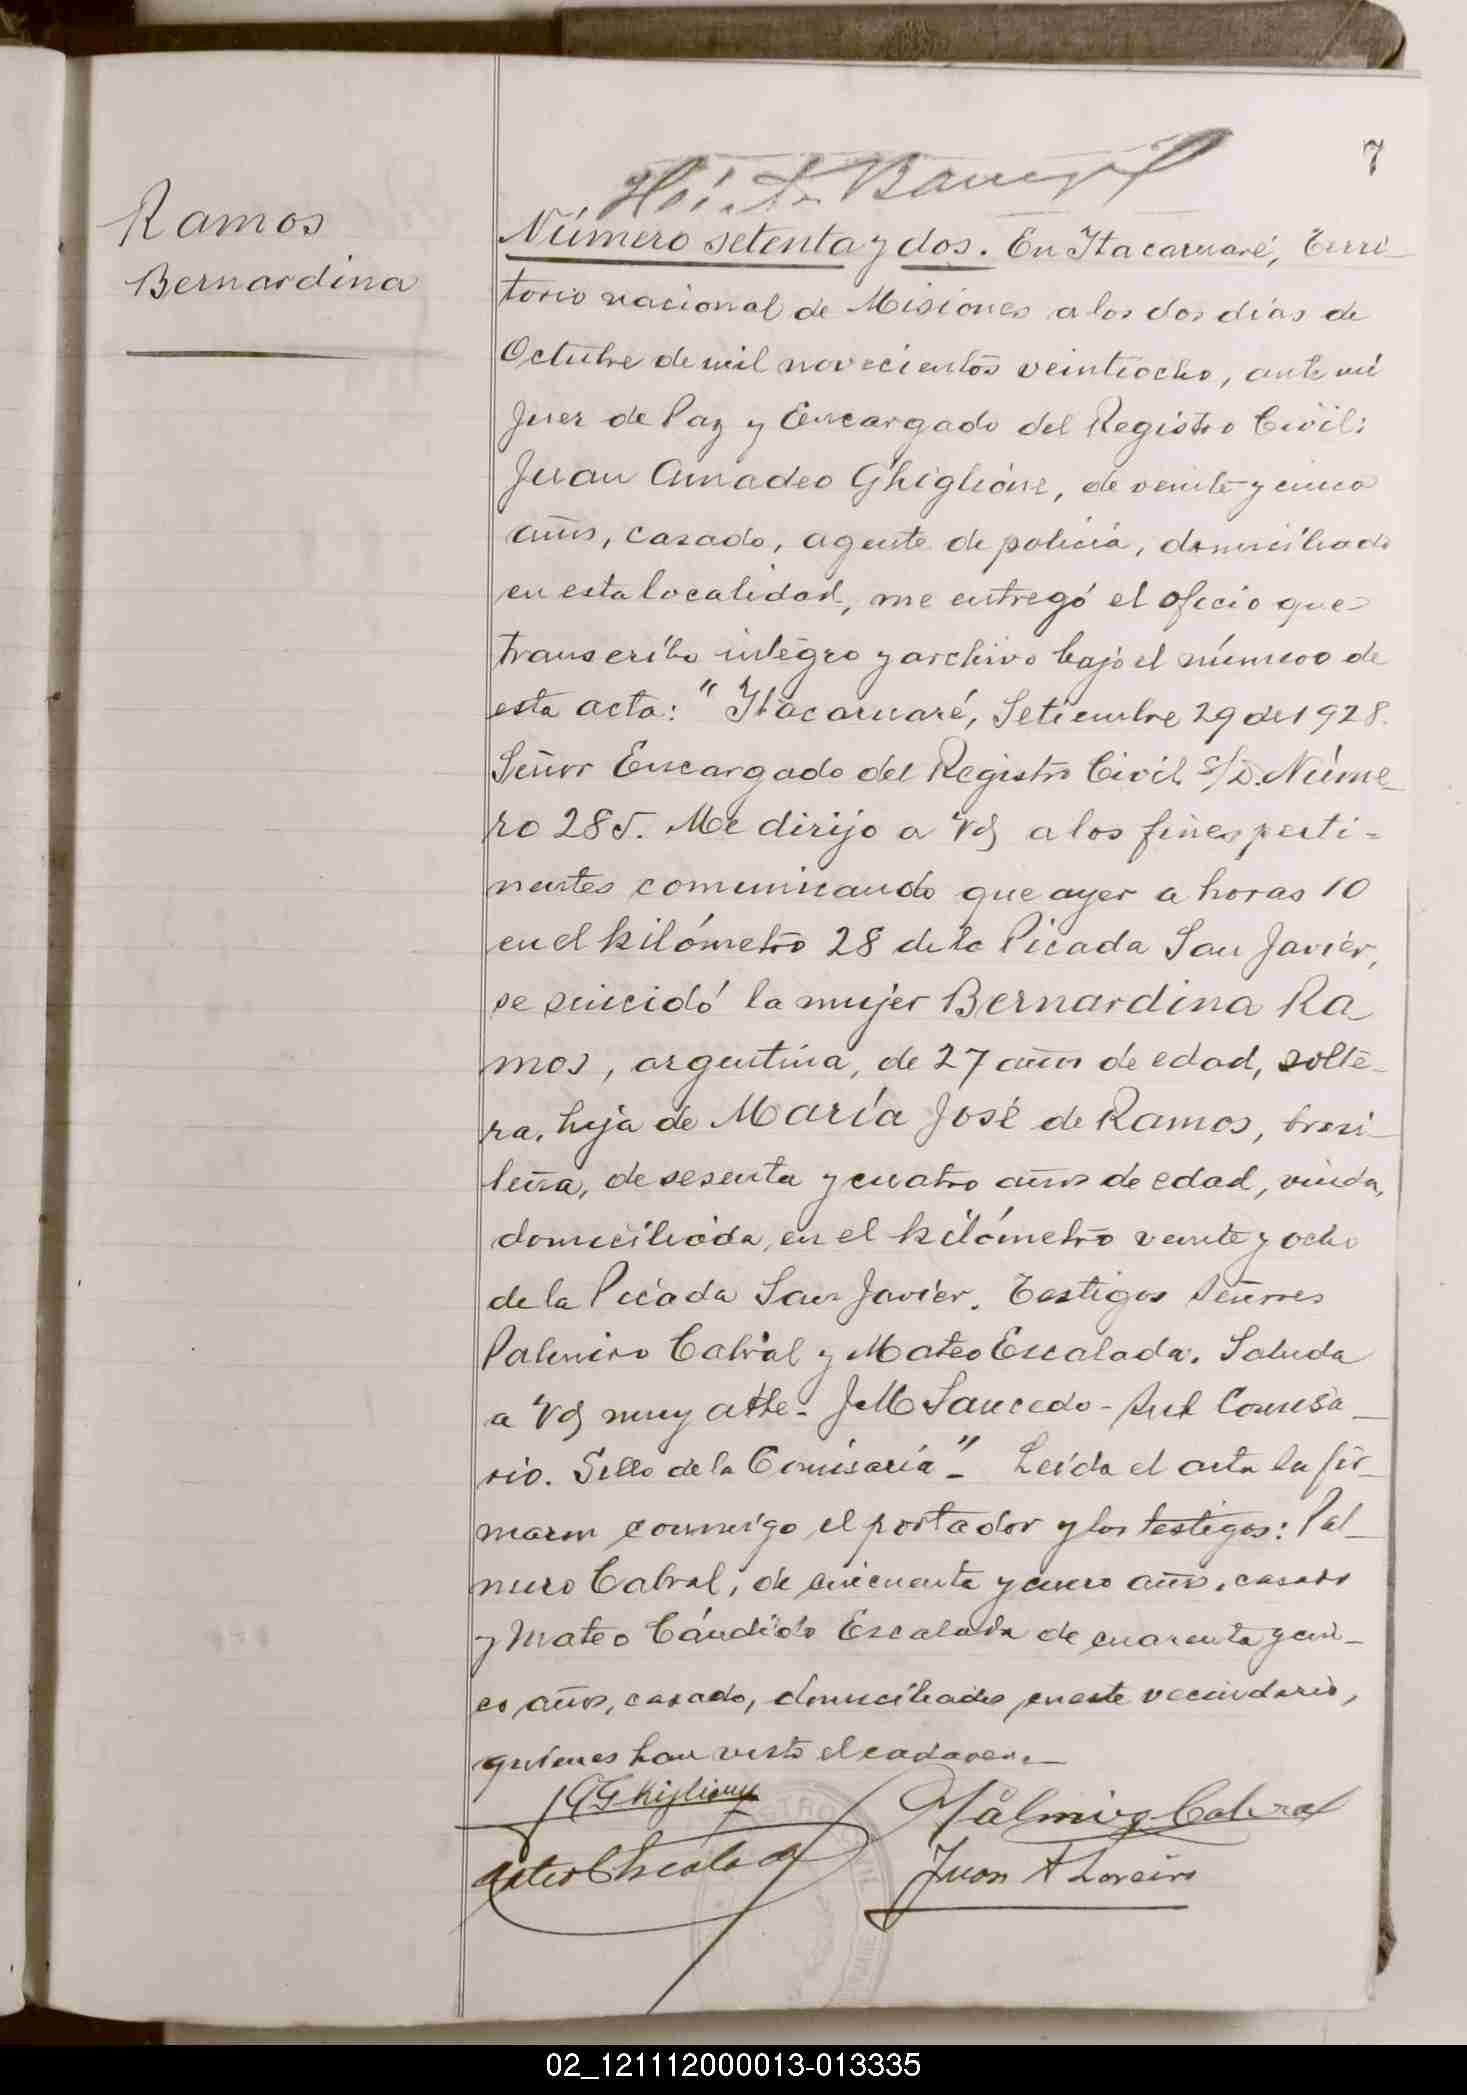 7
Ramos
Bernardina
Número setenta y dos. En Itacaruaré, Terri-
torio nacional de Misiones a los dos días de
Octubre de mil novecientos veintiocho, ante mí
Juez de Paz y Encargado del Registro Civil:
Juan Amadeo Ghiglione, de veinte y cinco
años, casado, agente de policía, domiciliado
en esta localidad, me entregó el oficio que
transcribo integro y archivo bajo el número de
esta acta: "Itacaruaré, Setiembre 29 de 1928.
Señor Encargado del Registro Civil S/D. Núme-
ro 285. Me dirijo a Vd a los fines perti-
nentes comunicando que ayer a horas 10
en el kilómetro 28 de la Picada San Javier,
se suicidó la mujer Bernardina Ra
mos, argentina, de 27 años de edad, solte-
ra, hija de María José de Ramos, brasi-
leña, de sesenta y cuatro años de edad, viuda,
domiciliada en el kilómetro veinte y ocho
de la Picada San Javier. Testigos Señores
Palmiro Cabral y Mateo Escalada. Saluda
a Vd muy atte- J M Saucedo - Sub Comisa-
rio. Sello de la Comisaría"- Leída el acta la fir-
maron conmigo el portador y los testigos: Pal-
miro Cabral, de cincuenta y años, casado
y Mateo Cándido Escalada de cuarenta y cin-
co años, casado, domiciliados en este vecindario,
quienes han visto el cadaver.-
J A Ghiglione
Palmiro Cabral
Mateo C Escalada
Juan A Loreiro
02_121112000013-013335